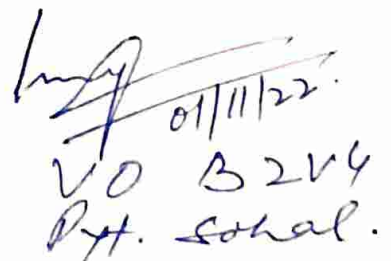 01/11/22.
VO B2V4
Pyt. Sohal.